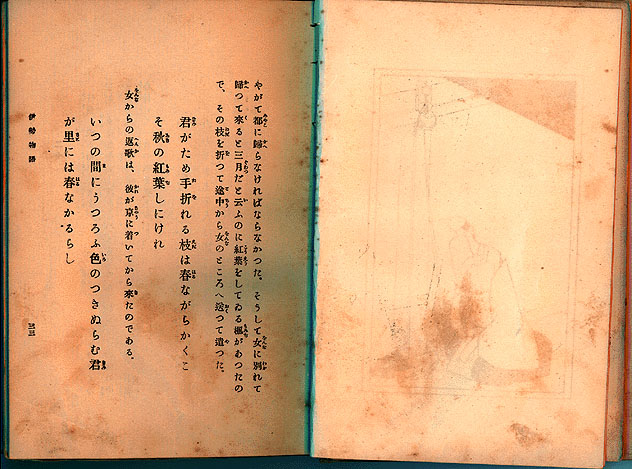 やがて都に歸らなければならなかつた。そうして女に別れて
歸つて來ると三月だと云ふのに紅葉をしてゐる楓があつたの
で、その枝を折つて途中から女のところへ送つて遣つた。
君がため手折れる枝は春ながらかくこ
そ秋の紅葉しにけれ
女からの返歌は、彼が京に着いてから來たのである。
いつの間にうつろふ色のつきぬらむ君
が里には春なかるらし
伊勢物語
三三